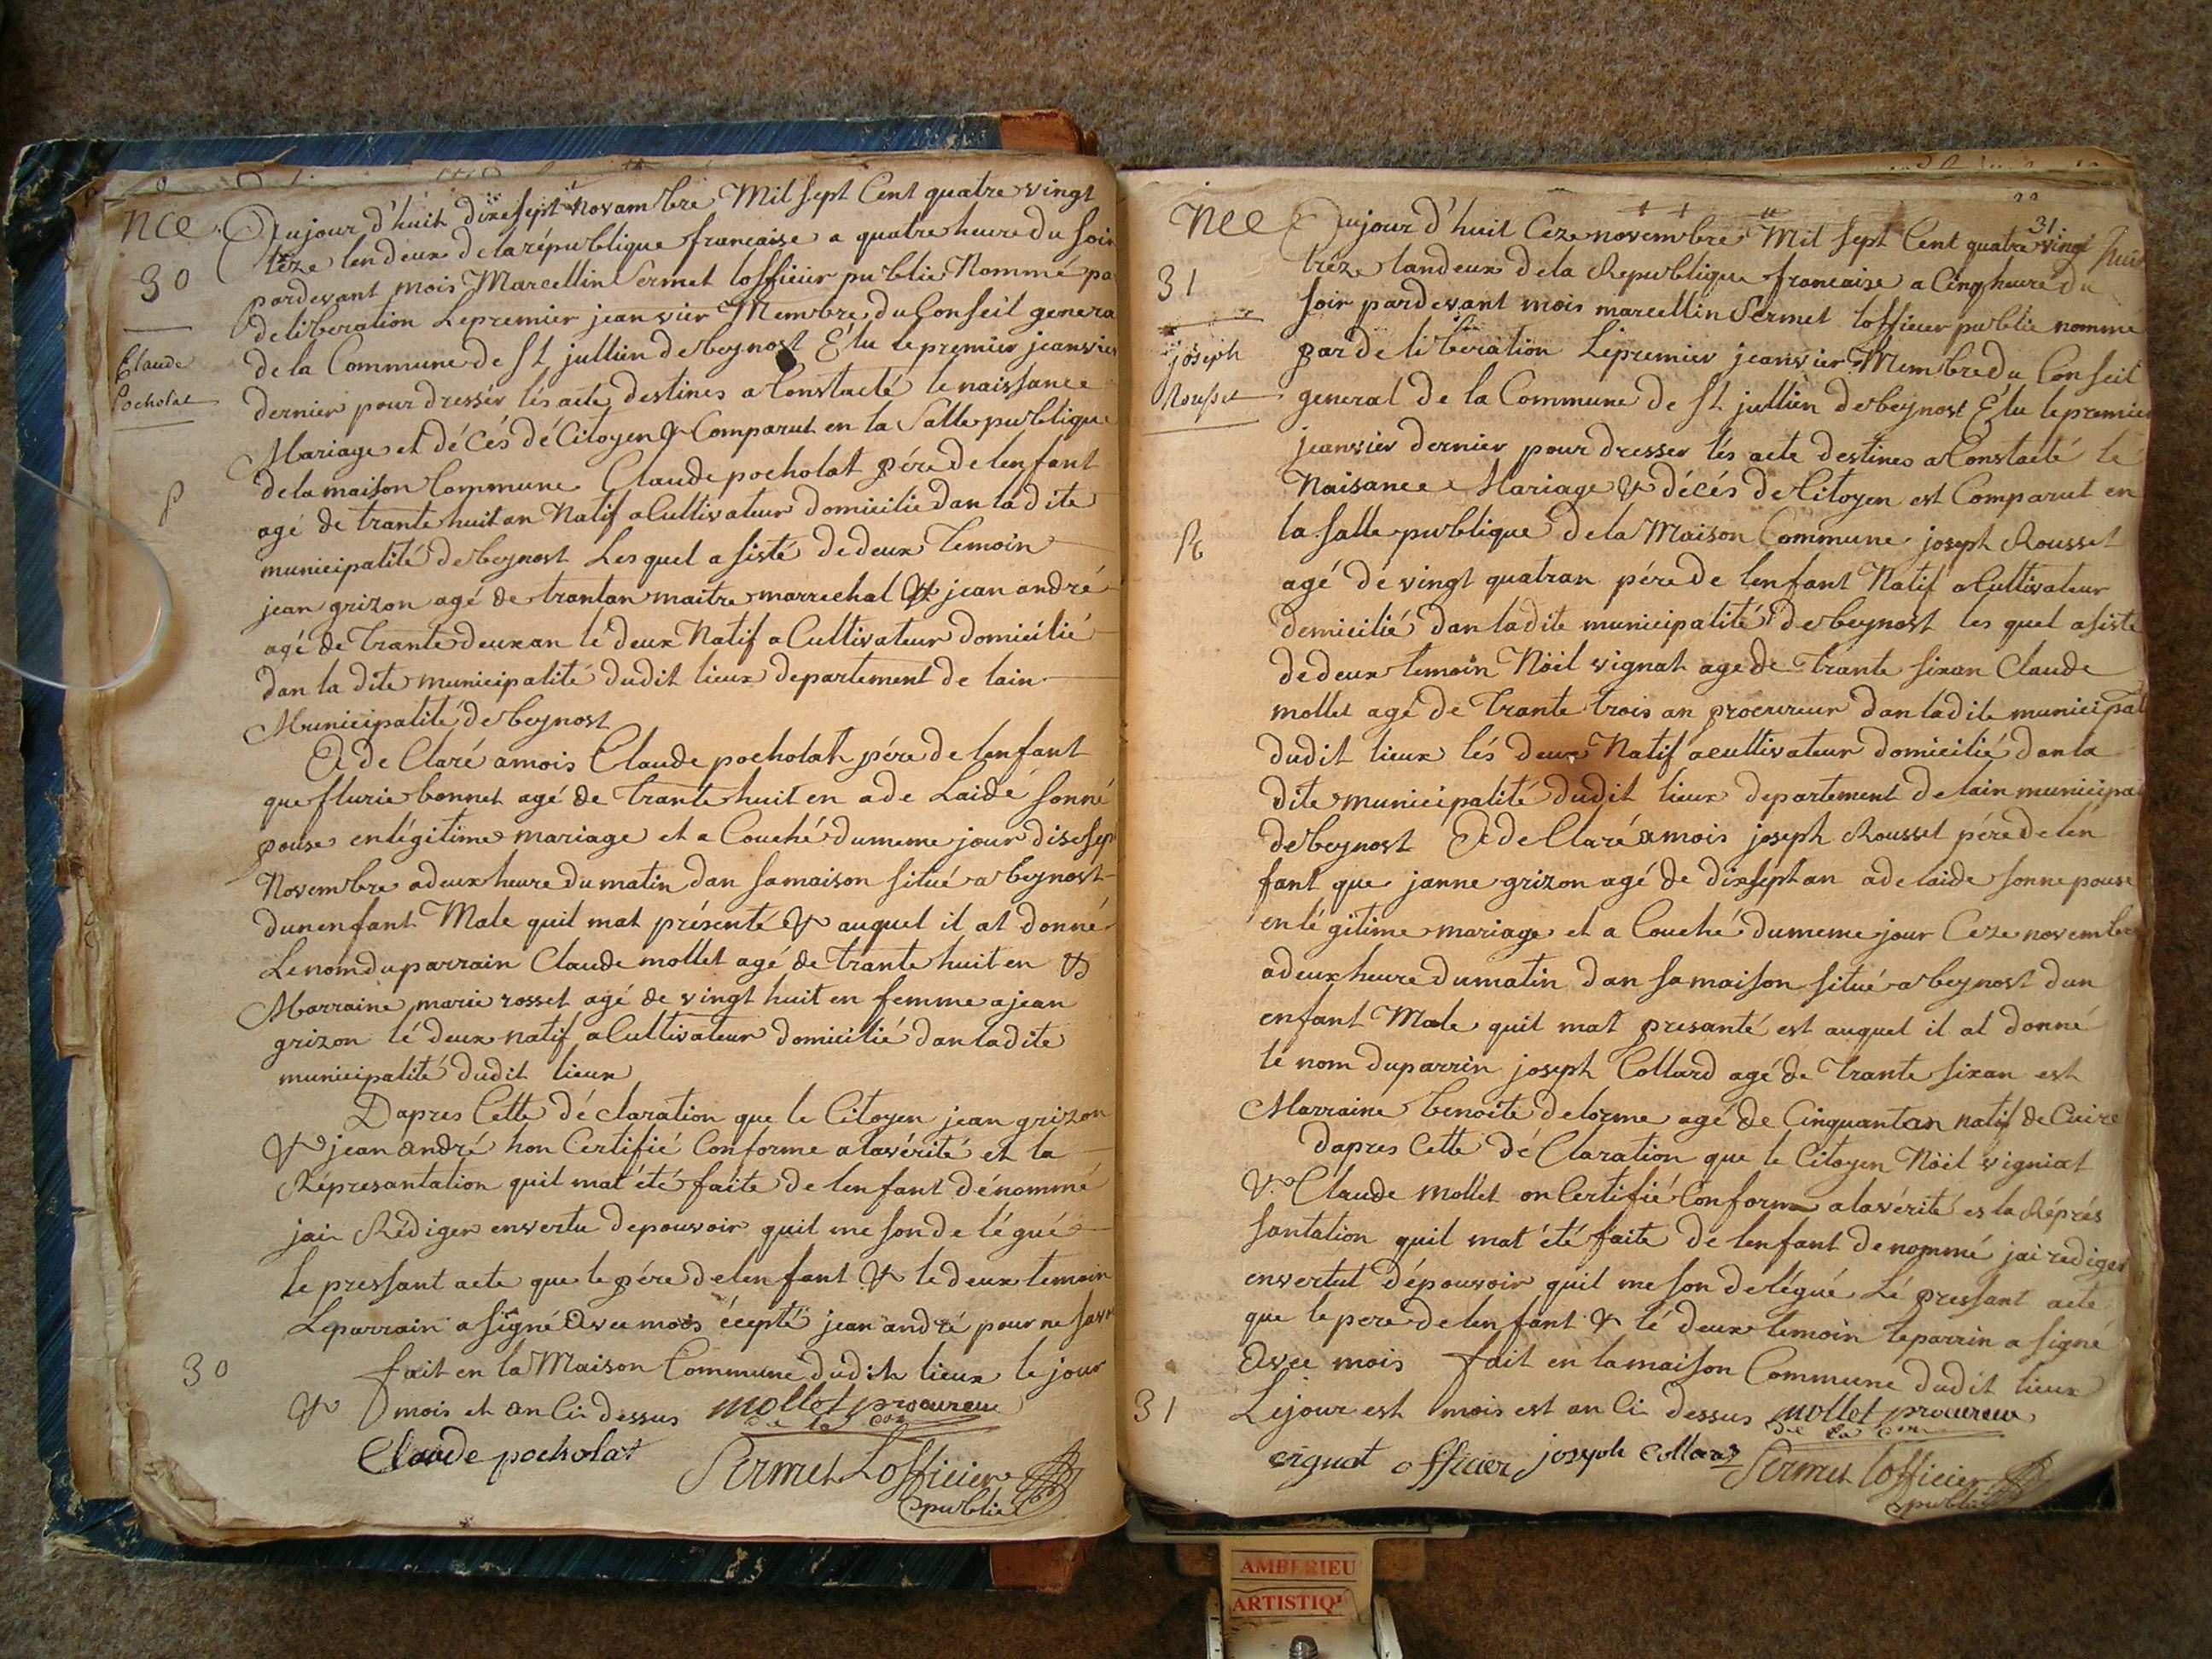 nce
30
Claude
Pocholat
Aujourd'huit dixesept novambre Mil sept Cent quatre vingt
tréze lendeux de la république francaise a quatre heure du soir
pardevant mois Marcellin Sermet lofficier public Nommé pa
deliberation Lepremier jeanvier Membre du Conseil genera
de la Commune de St jullien de beynost Élu le premier jeanvier
dernier pour dresser lés acte destines a Constacté le naissance
Mariage et décés dé Citoyen & Comparut en la Salle publique
de la maison Commune Claude pocholat pére de lenfant
agé de trante huit an Natif a Cultivateur domicilie dan la dite
municipalité de beynost Lesquel a sisté de deux temoin
jean grizon agé de trantan maitre marrechal & jean andré
agé de trante deux an le deux Natif a Cultivateur domicilié
dan la dite municipalité dudit lieux departement de lain
Municipalité de beynost
A de Claré a mois Claude pocholat pére de lenfant
que flurie bonnet agé de trante huit en ade Laidé sonné
pouse en légitime mariage et a Couché du meme jour disesep
Novembre a deux heure du matin dan sa maison situé a beynost
dun enfant Male quil mat présenté & auquel il at donné
Le nom du parrain Claude mollet agé de trante huit en &
Marraine marie rosset agé de vingt huit en femme a jean
grizon lé deux natif a Cultivateur domicilié dan ladite
municipalité dudit lieux
Dapres Cette dé claration que le Citoyen jean grizon
& jean andré hon Certifié Conforme a la vérité et la
Répresantation quil mat été faite de lenfant dénommé
jai Rédiger en vertu de pouvoir quil me son de légué
le pressant acte que le pére de lenfant & le deux temoin
Le parrain a signé Avec mois écepté jean andré pour ne savr
30
fait en la Maison Commune dudit lieux le jour
& mois et an Ci dessus mollet procureur
de la com
Claude pocholat
Sermet Lofficier
public
nce
31
joseph
Rousset
31
Aujourd'huit Ceze novembre Mil sept Cent quatre vingt
tréze landeux de la Republique francaise a Cinq heure du
soir pardevant mois marcellin Sermet lofficier public nomme
par de liberation Lepremier jeanvier Membre du Conseil
general de la Commune de St jullien de beynost Élu le premier
jeanvier dernier pour dresser lés acte destines a Constacté lé
Naisance Mariage & décés de Citoyen est Comparut en
la salle publique de la Maison Commune joseph Rousset
agé dé vingt quatran pére de lenfant Natif a Cultivateur
domicilié dan ladite municipalité de beynost les quel a siste
de deux temoin Nöil vignat age de trante sixan Claude
mollet agé de trante trois an procureur dan ladite municipal
dudit lieux lés deux Natif a cultivateur domicilié dan la
dite municipalité dudit lieux departement de lain municipa
de beynost A de Claré a mois joseph Rousset pére de len
fant que janne grizon agé de dixseptan ade laide sonne pouse
en lé gitime mariage et a Couché du meme jour Ceze novembre
a deux heure du matin dan sa maison situé a beynost dun
enfant Male quil mat presanté est auquel il at donné
lé nom du parrin joseph Collard agé de trante sixan est
Marraine benoite delorme agé de Cinquantan natif de Cuire
dapres Cette dé Claration que le Citoyen Nöil vigniat
& Claude mollet on Certifié Conforme a la vérité es la Réprés
santation quil mat été faite de lenfant de nommé jai rediger
en vertut dépouvoir quil me son delégué Lé pressant acte
que le pere de lenfant & lé deux temoin le parrin a signé
Avec mois fait en la maison Commune dudit lieux
31
Le jour est mois est an Ci dessus mollet procureur
de la com
vignat officier joseph collard Sermet lofficier
public
AMBERIEU
ARTISTIQ